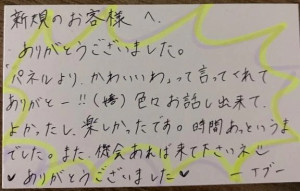 新規のお客様へ
ありがとうございました。
パネルより、かわいいわって言ってくれて
ありがとー!!( )色々お話し出来て、
よかったし、楽しかったです。時間あっというま
でした。また、機会あれば来て下さいネ
♥ありがとうございました♥